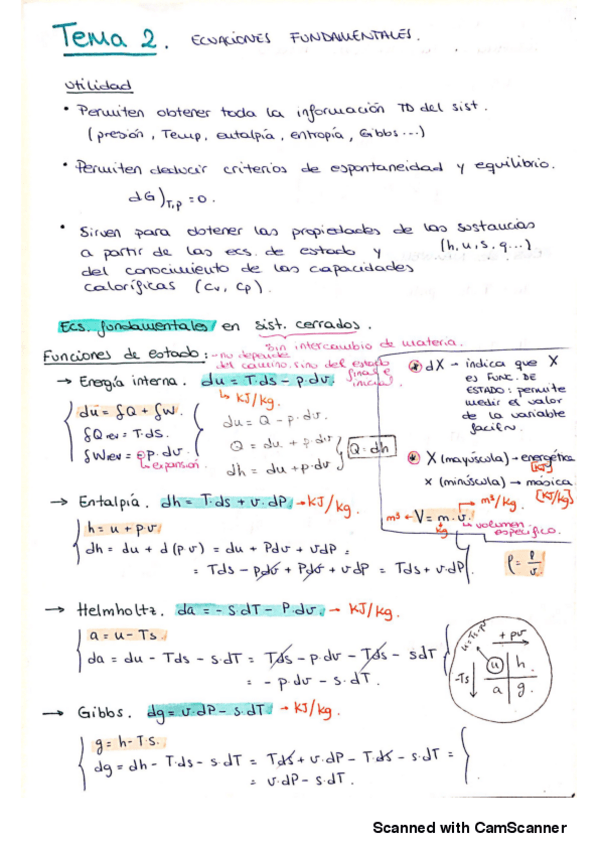 Tema 2. ECUACIONES FUNDAMENTALES.
Utilidad
• Permiten obtener toda la información TD del sist.
(presión, Temp, entalpía, entropía, Gibbs...)
• Permiten deducir criterios de espontaneidad y equilibrio.
dG)T,p = 0.
• Sirven para obtener las propiedades de las sustancias
a partir de las ecs. de estado y (h, u, s, g...)
del conocimiento de las capacidades
caloríficas (Cv, Cp).
Ecs. fundamentales en sist. cerrados.
sin intercambio de materia.
Funciones de estado: - no dependen
del camino, sino del estado
final e
inicial
→ Energía interna. du = T·ds - p·dv.
↳ KJ/kg.
du = δQ + δW.
δQrev = T·ds.
δWrev = -p·dv.
↳ expansión
du = Q - p·dv.
Q = du + p·dv
dh = du + p·dv
Q = dh
* dX → indica que X
es FUNC. DE
ESTADO: permite
medir el valor
de la variable
* X (mayúscula) → energética [KJ]
x (minúscula) → másica [KJ/kg]
m³ ← V = m·v. → m³/kg.
kg
↳ volumen
específico.
→ Entalpía. dh = T·ds + v·dP → KJ/kg.
h = u + pv
dh = du + d(pv) = du + Pdv + vdP =
= Tds - pdv + Pdv + vdP = Tds + v·dP
→ Helmholtz. da = - s·dT - P·dv. → KJ/kg.
a = u - Ts
da = du - Tds - s·dT = Tds - p·dv - Tds - sdT
= - p·dv - s·dT.
+ pv
u = Ts - pv
-Ts
u h.
a g.
→ Gibbs. dg = v·dP - s·dT → KJ/kg.
g = h - T·s.
dg = dh - T·ds - s·dT = Tds + v·dP - T·ds - s·dT =
= v·dP - s·dT.
Scanned with CamScanner